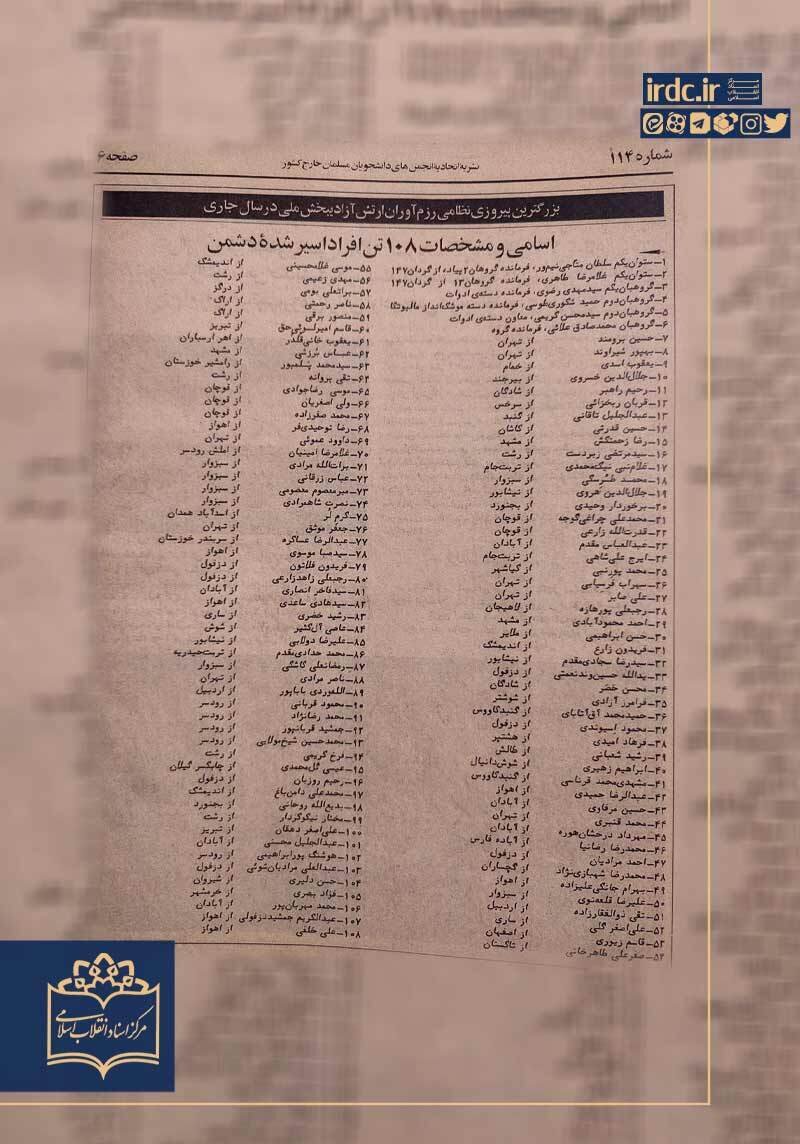 irdc.ir
مرکز اسناد انقلاب اسلامی
شماره ۱۱۴
نشریه اتحادیه انجمن های دانشجویان مسلمان خارج کشور
صفحه ۶
بزرگترین پیروزی نظامی رزم آوران ارتش آزادیبخش ملی در سال جاری
اسامی و مشخصات ۱۰۸ تن افراد اسیر شدهٔ دشمن
۱ــ ستوان‌یکم سلطان متاجی‌نیم‌ور، فرمانده گروهان ۲ پیاده از گردان ۱۴۷
۲ــ ستوان‌یکم غلامرضا طاهری، فرمانده گروهان ۱۳ از گردان ۱۴۷
۳ــ گروهبان‌یکم سیدمهدی رضوی، فرمانده دسته‌ی ادوات
۴ــ گروهبان‌دوم حمید شکوری‌طوسی، فرمانده دسته موشک‌انداز مالیوتکا
۵ــ گروهبان‌دوم سیدمحسن کریمی، معاون دسته‌ی ادوات
۶ــ گروهبان محمدصادق علائی، فرمانده گروه
۷ــ حسین برومند از تهران
۸ــ بهپور شیراوند از تهران
۹ــ یعقوب اسدی از خمام
۱۰ــ جلال‌الدین خسروی از بیرجند
۱۱ــ رحیم راهبر از شادگان
۱۲ــ قربان ریخزائی از سرخس
۱۳ــ عبدالجلیل تاقانی از گنبد
۱۴ــ حسین قدرتی از کاشان
۱۵ــ رضا زحمتکش از مشهد
۱۶ــ سیدمرتضی زبردست از رشت
۱۷ــ غلام‌نبی نیک‌محمدی از تربت‌جام
۱۸ــ محمد طُرسکی از سبزوار
۱۹ــ جلال‌الدین هروی از نیشابور
۲۰ــ برخوردار وحیدی از بجنورد
۲۱ــ محمدعلی چراغی‌گوجه از قوچان
۲۲ــ قدرت‌الله زارعی از قوچان
۲۳ــ عبدالعباس مقدم از آبادان
۲۴ــ ایرج علی‌شاهی از تربت‌جام
۲۵ــ محمد پورنبی از کیاشهر
۲۶ــ سهراب فرسیابی از تهران
۲۷ــ علی صابر از تهران
۲۸ــ رجبعلی پورهازه از لاهیجان
۲۹ــ احمد محمودآبادی از مشهد
۳۰ــ حسن ابراهیمی از ملایر
۳۱ــ فریدون زارع از اندیمشک
۳۲ــ سیدرضا سجادی‌مقدم از نیشابور
۳۳ــ یدالله حسین‌وندنعمتی از دزفول
۳۴ــ محسن خضر از شادگان
۳۵ــ فرامرز آزادی از شوشتر
۳۶ــ حمیدمحمد آق‌آتابای از گنبدکاووس
۳۷ــ محمود اسیوندی از دزفول
۳۸ــ فرهاد امیدی از هشتپر
۳۹ــ رشید شعبانی از طالش
۴۰ــ ابراهیم زهیری از شوش‌دانیال
۴۱ــ مشهدی‌محمد قرناسی از گنبدکاووس
۴۲ــ عبدالرضا حمیدی از اهواز
۴۳ــ حسین مرفاوی از آبادان
۴۴ــ محمد قنبری از تهران
۴۵ــ مهرداد درخشان‌هوره از آبادان
۴۶ــ محمدرضا رضانیا از آباده فارس
۴۷ــ احمد مرادیان از دزفول
۴۸ــ محمدرضا شهبازی‌نژاد از گچساران
۴۹ــ بهرام جانگی‌علیزاده از اهواز
۵۰ــ علیرضا قلعه‌نوی از سبزوار
۵۱ــ تقی ذوالفقارزاده از اردبیل
۵۲ــ علی‌اصغر گلی از ساری
۵۳ــ قاسم زیوری از اصفهان
۵۴ــ صفرعلی طاهرخانی از تاکستان
۵۵ــ موسی غلامحسینی از اندیمشک
۵۶ــ مهدی زعیمی از رشت
۵۷ــ براتعلی بومی از درگز
۵۸ــ ناصر رحمتی از اراک
۵۹ــ منصور برقی از اراک
۶۰ــ قاسم امیرلسوئی‌حق از تبریز
۶۱ــ یعقوب خانی‌قلدر از اهر ارسباران
۶۲ــ عباس بُرزشی از مشهد
۶۳ــ سیدمحمد پسلمبور از رامشیر خوزستان
۶۴ــ تقی بروانه از رشت
۶۵ــ موسی رضاجوادی از قوچان
۶۶ــ ولی اصغریان از قوچان
۶۷ــ محمد صفرزاده از قوچان
۶۸ــ رضا توحیدی‌فر از اهواز
۶۹ــ داوود عموئی از تهران
۷۰ــ غلامرضا امینیان از املش رودسر
۷۱ــ برات‌الله مرادی از سبزوار
۷۲ــ عباس زرقانی از سبزوار
۷۳ــ میرمعصوم معصومی از سبزوار
۷۴ــ نصرت شاهمرادی از سبزوار
۷۵ــ کرم لُر از اسدآباد همدان
۷۶ــ جعفر موثق از تهران
۷۷ــ عبدالرضا عساکره از سربندر خوزستان
۷۸ــ سیدصبا موسوی از اهواز
۷۹ــ فریدون فلاتون از دزفول
۸۰ــ رجبعلی زاهدزارعی از دزفول
۸۱ــ سیدفاخر انصاری از آبادان
۸۲ــ سیدهادی ساعدی از اهواز
۸۳ــ رشید خضری از ساری
۸۴ــ عاصی آل‌کثیر از شوش
۸۵ــ علیرضا دولابی از نیشابور
۸۶ــ محمد حدادی‌مقدم از تربت‌حیدریه
۸۷ــ رمضانعلی کاشکی از سبزوار
۸۸ــ ناصر مرادی از تهران
۸۹ــ الله‌وردی باباپور از اردبیل
۹۰ــ محمود قربانی از رودسر
۹۱ــ محمد رضانژاد از رودسر
۹۲ــ جمشید قربانپور از رودسر
۹۳ــ محمدحسین شیخ‌مولایی از رودسر
۹۴ــ فرخ کریمی از رشت
۹۵ــ عیسی گل‌محمدی از چابکسر گیلان
۹۶ــ رحیم روزبان از دزفول
۹۷ــ محمدعلی دامن‌باغ از اندیمشک
۹۸ــ بدیع‌الله روحانی از بجنورد
۹۹ــ مختار نیکوکردار از رشت
۱۰۰ــ علی‌اصغر دهقان از تبریز
۱۰۱ــ عبدالجلیل محسنی از آبادان
۱۰۲ــ هوشنگ پورابراهیمی از رودسر
۱۰۳ــ عبدالعلی مرادیان‌شوئی از دزفول
۱۰۴ــ حسن دلیری از شیروان
۱۰۵ــ فؤاد بصری از خرمشهر
۱۰۶ــ محمد مهربان‌پور از آبادان
۱۰۷ــ عبدالکریم جمشیددزفولی از اهواز
۱۰۸ــ علی خلفی از اهواز
مرکز اسناد انقلاب اسلامی